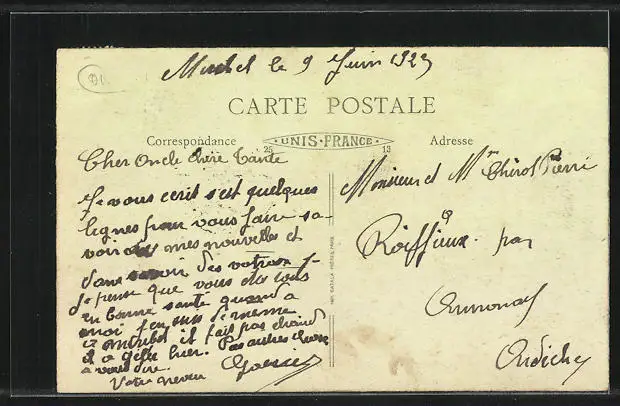 le 9 Juin 1923
CARTE POSTALE
Correspondance
25 UNIS-FRANCE 13
Adresse
Cher Oncle chère Tante
Je vous ecrit s'est quelques
lignes pour vous faire sa-
voir mes nouvelles et
des votres
Je pense que vous etes tous
en bonne santé quand a
moi j'en suis de meme
il fait pas chaud
il a gelé hier. Pas autres chose
a vous dire.
Votre neveu
Monsieur et Mme Pierre
Roiffieux par
Annonay
Ardèche
IMP. CATALA FRÈRES, PARIS